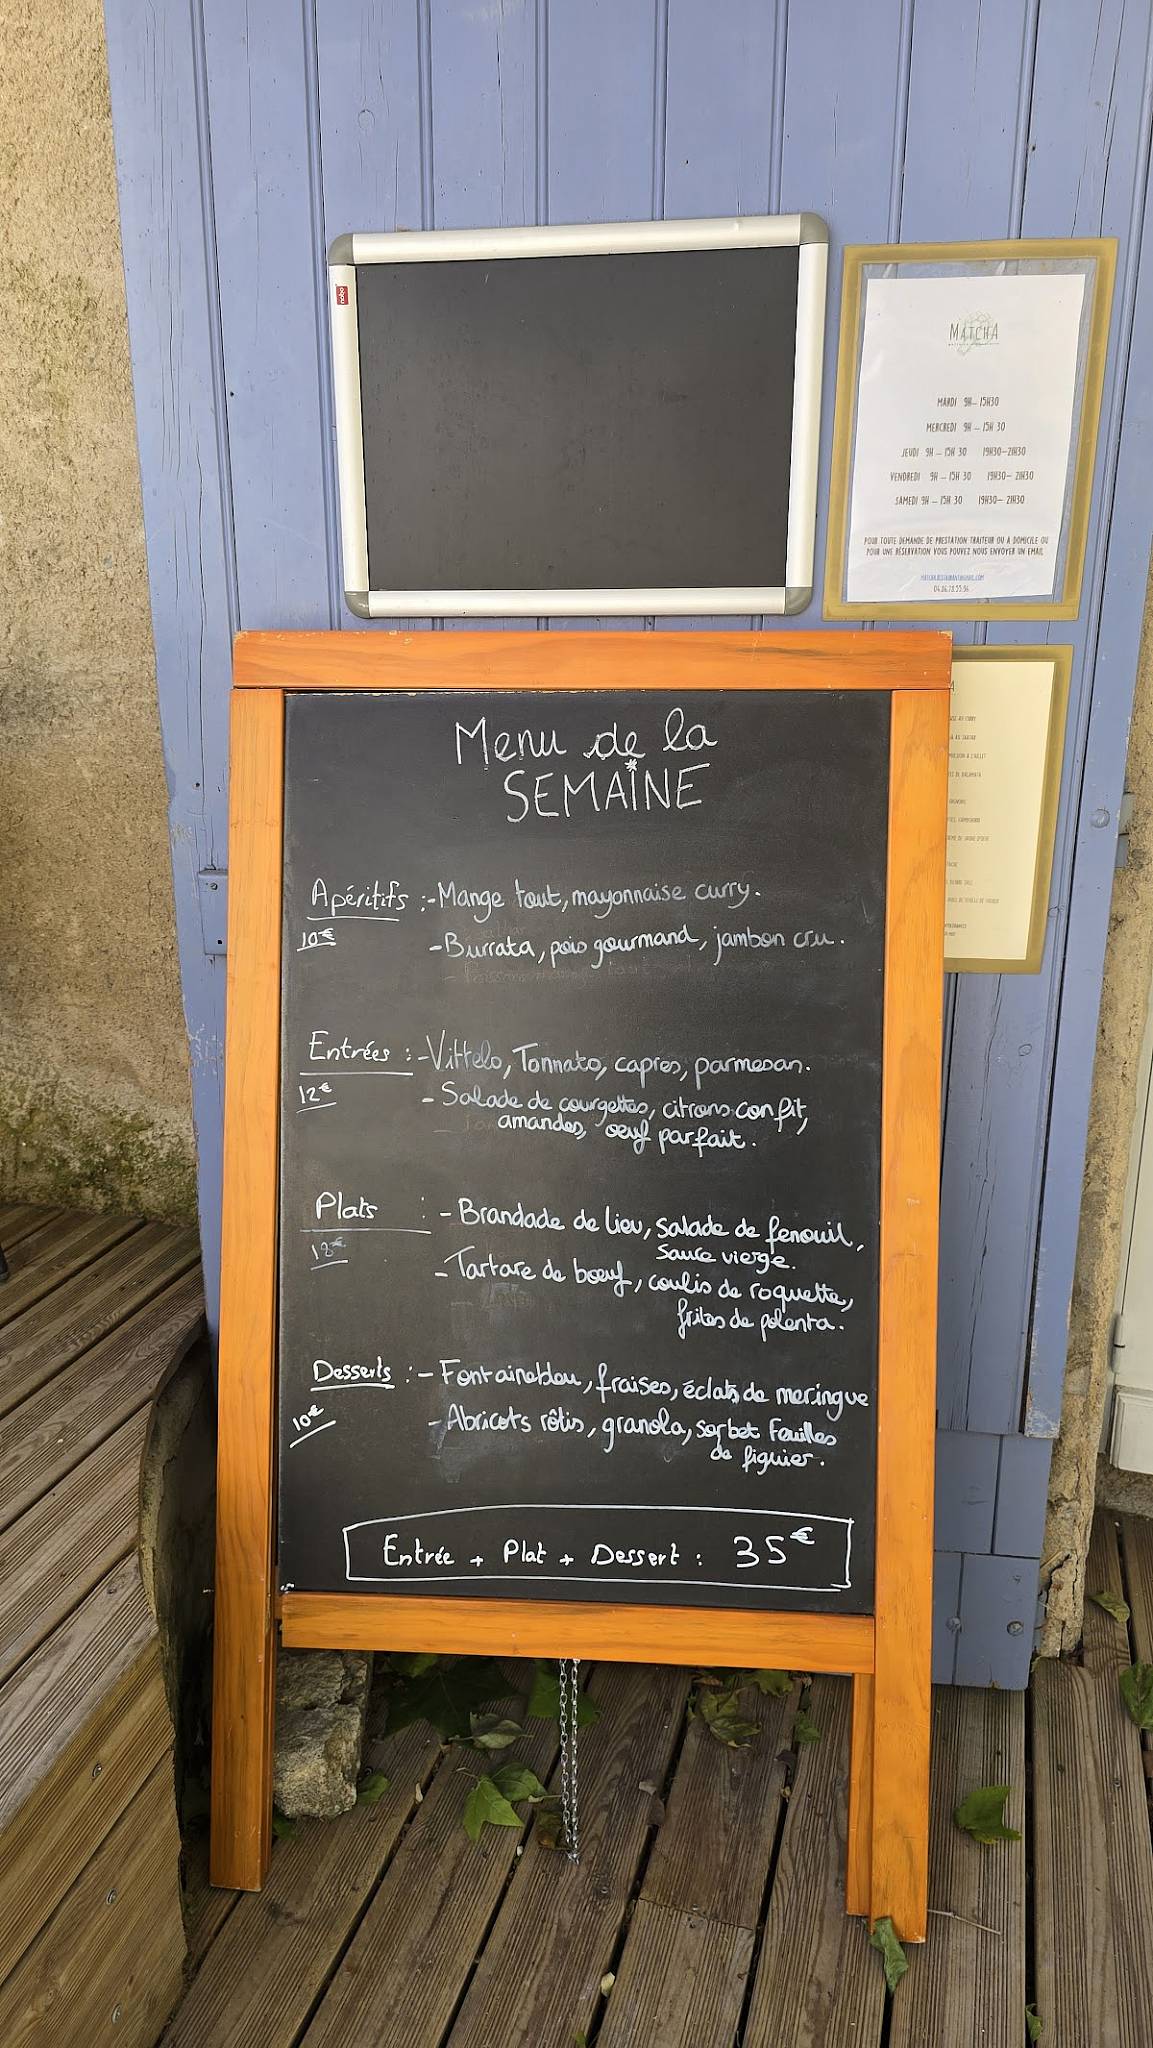 nobo
MATCHA
MARDI 9H – 15H30
MERCREDI 9H – 15H 30
JEUDI 9H – 15H 30 19H30– 21H30
VENDREDI 9H – 15H 30 19H30– 21H30
SAMEDI 9H – 15H 30 19H30– 21H30
POUR TOUTE DEMANDE DE PRESTATION TRAITEUR OU A DOMICILE OU
POUR UNE RÉSERVATION VOUS POUVEZ NOUS ENVOYER UN EMAIL
Menu de la
SEMAINE
Apéritifs : - Mange tout, mayonnaise curry.
10€
- Burrata, pois gourmand, jambon cru.
Entrées : - Vittelo, Tonnato, capres, parmesan.
12€
- Salade de courgettes, citrons confit,
amandes, oeuf parfait.
Plats : - Brandade de lieu, salade de fenouil,
18€
sauce vierge.
- Tartare de boeuf, coulis de roquette,
frites de polenta.
Desserts : - Fontainebleu, fraises, éclats de meringue
10€
- Abricots rôtis, granola, sorbet Feuilles
de figuier.
Entrée + Plat + Dessert : 35€